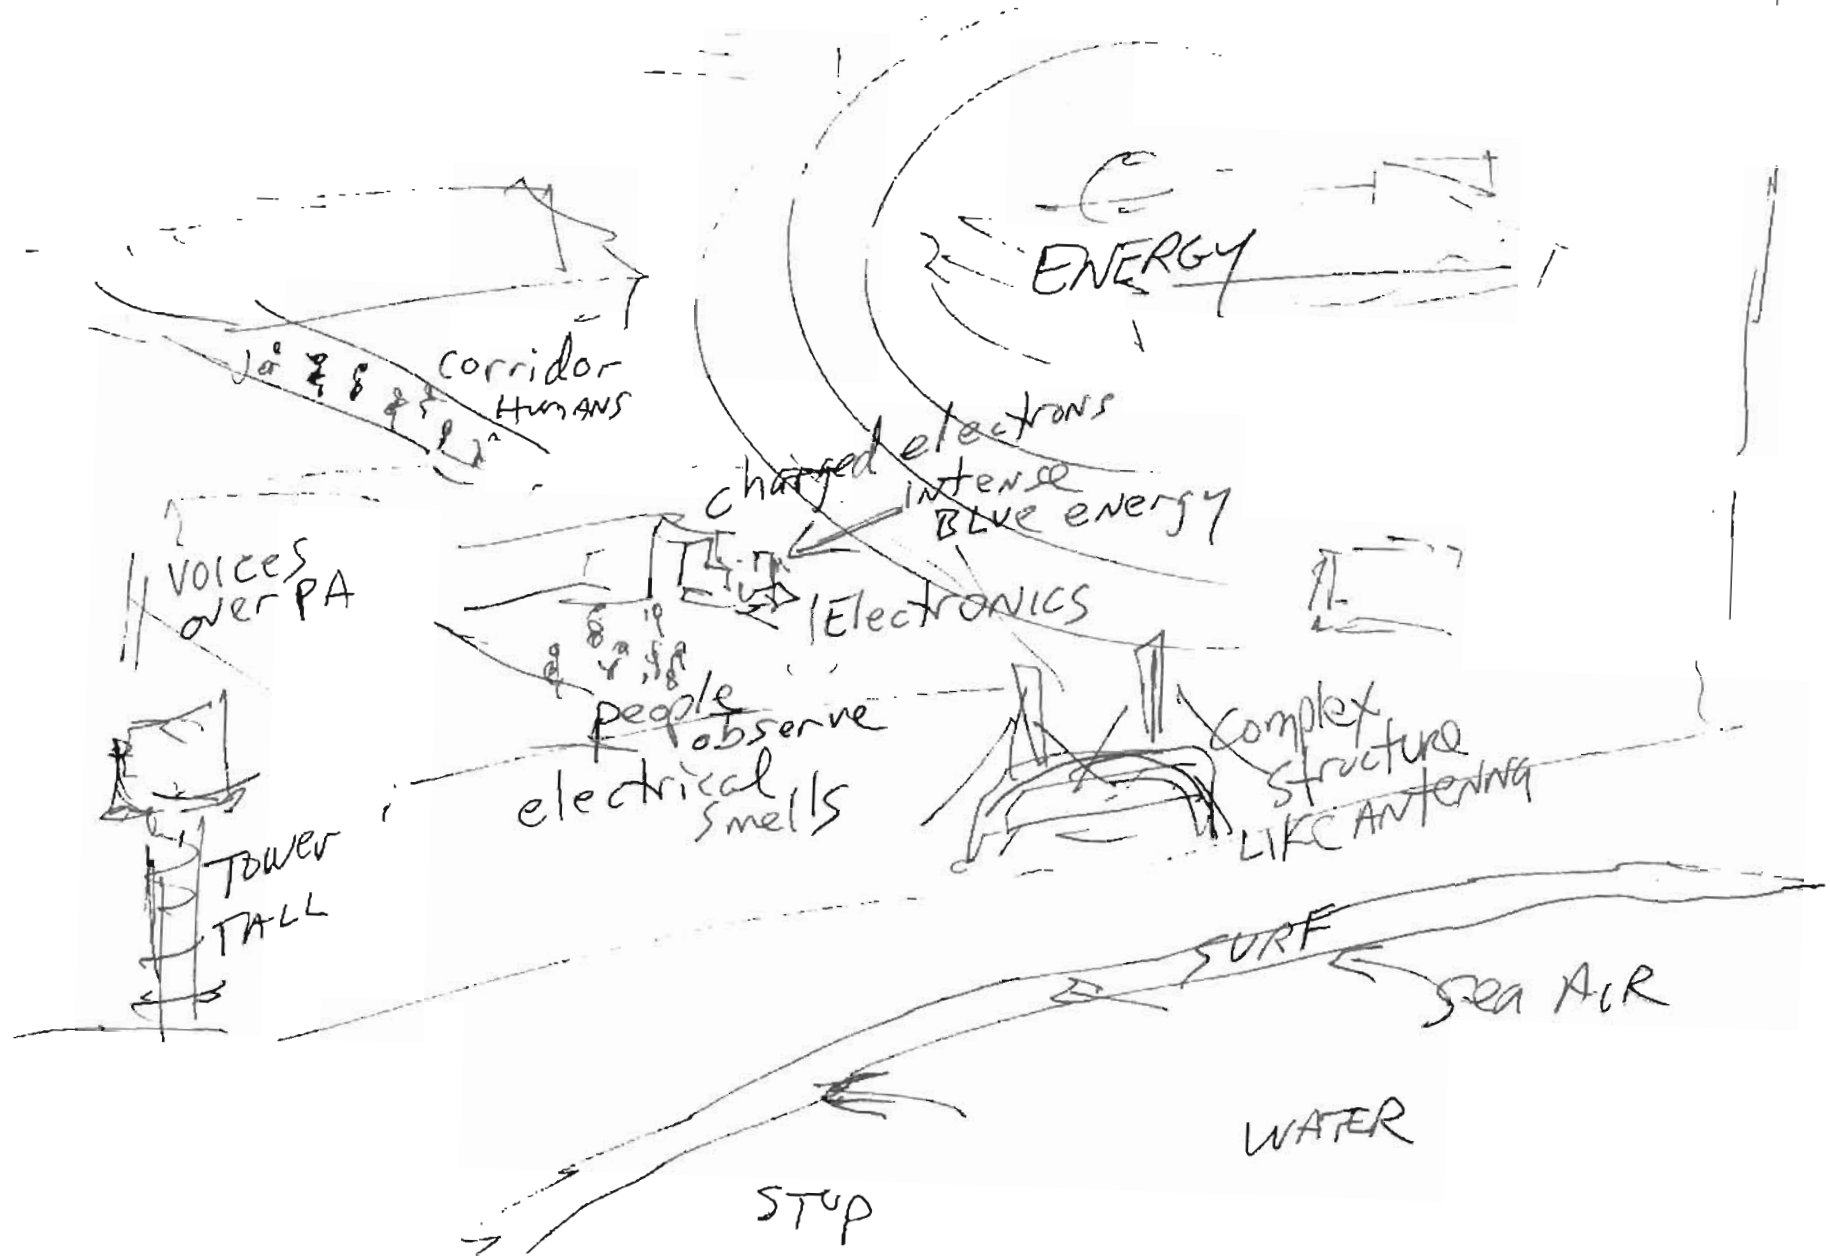 ENERGY
corridor
HUMANS
charged electrons
intense
BLUE energy
VOICES
over PA
Electronics
people
observe
electrical
smells
complex
structure
LIKE ANTENNA
TOWER
TALL
SURF
Sea AIR
WATER
STOP